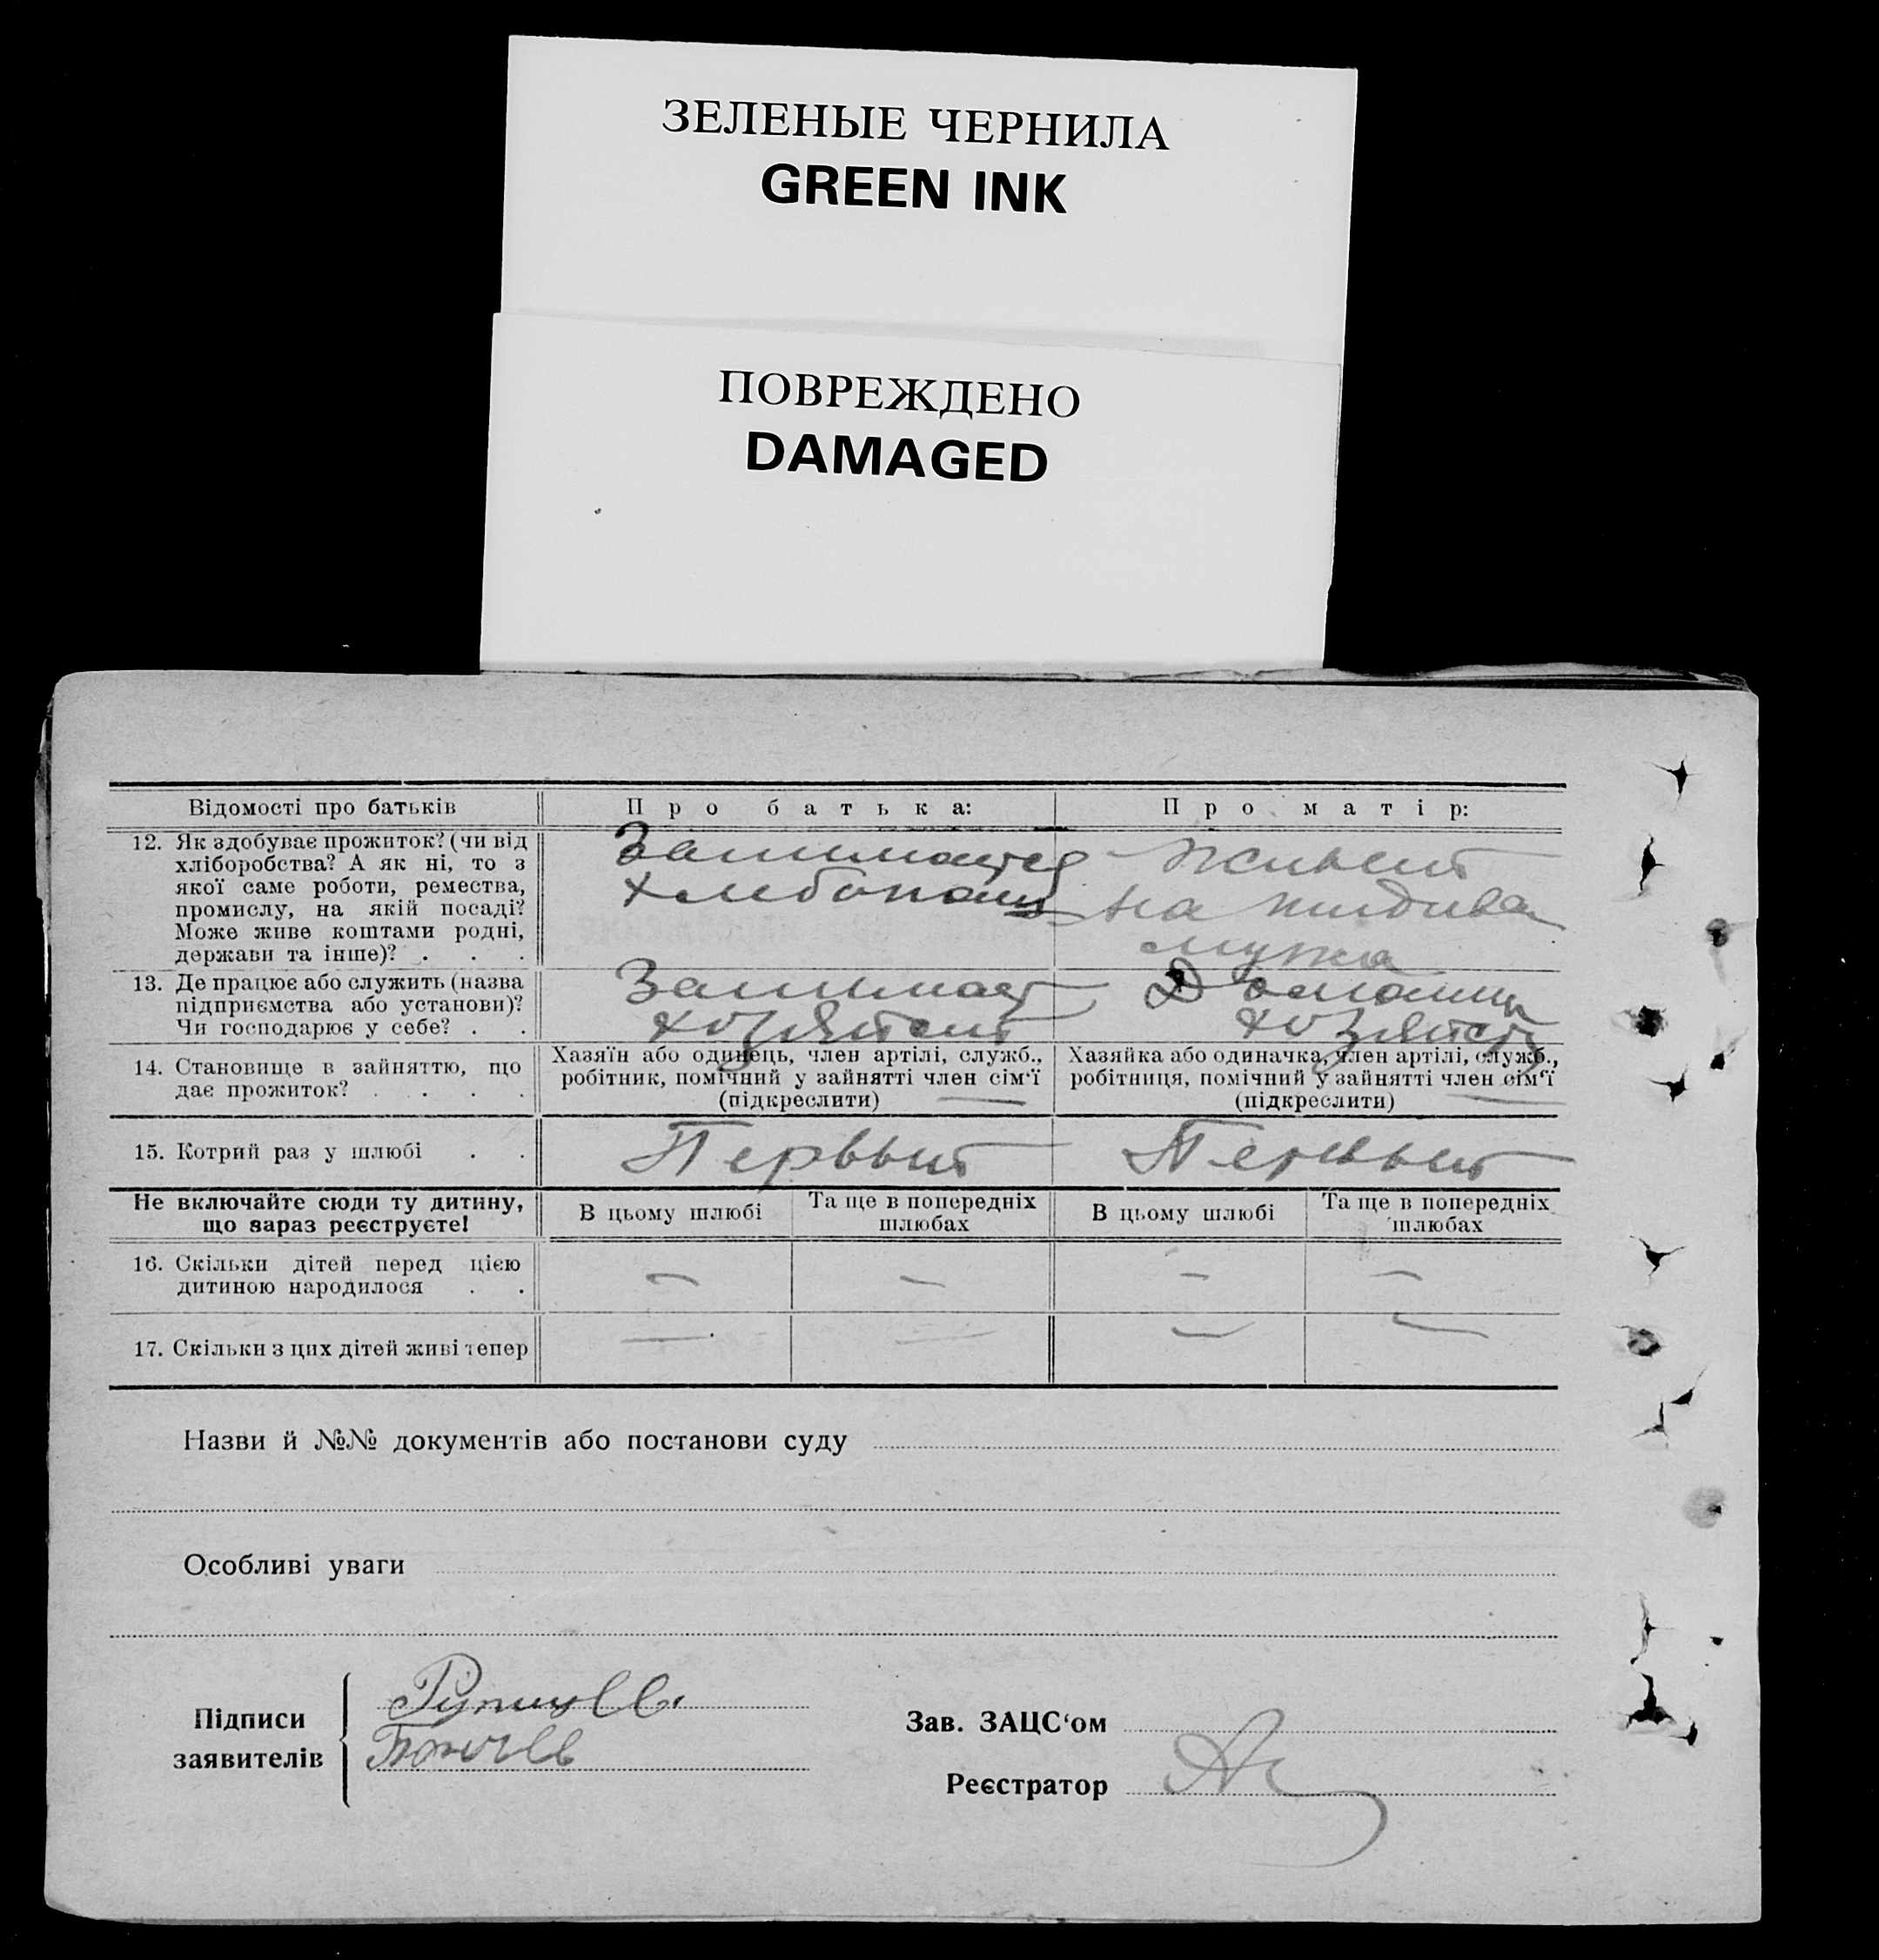 ЗЕЛЕНЫЕ ЧЕРНИЛА
GREEN INK
ПОВРЕЖДЕНО
DAMAGED
Відомості про батьків
Про батька:
Про матір:
12. Як здобуває прожиток? (чи від
хліборобства? А як ні, то з
якої саме роботи, ремества,
промислу, на якій посаді?
Може живе коштами родні,
держави та інше)? . . .
Занимается
хлебопаш
Живет
на
мужа
13. Де працює або служить (назва
підприємства або установи)?
Чи господарює у себе? . .
Занимает
хозяйст
Домашн
хозяйст
14. Становище в зайняттю, що
дає прожиток? . . . .
Хазяїн або одинець, член артілі, служб.,
робітник, помічний у зайнятті член сім'ї
(підкреслити)
Хазяйка або одиначка, член артілі, служб.,
робітниця, помічний у зайнятті член сім'ї
(підкреслити)
15. Котрий раз у шлюбі . .
Первый
Первый
Не включайте сюди ту дитину,
що зараз реєструєте!
В цьому шлюбі
Та ще в попередніх
шлюбах
В цьому шлюбі
Та ще в попередніх
шлюбах
16. Скільки дітей перед цією
дитиною народилося . .
— — — —
17. Скільки з цих дітей живі тепер
— — — —
Назви й №№ документів або постанови суду
Особливі уваги
Підписи
заявителів
Зав. ЗАЦС'ом
Реєстратор